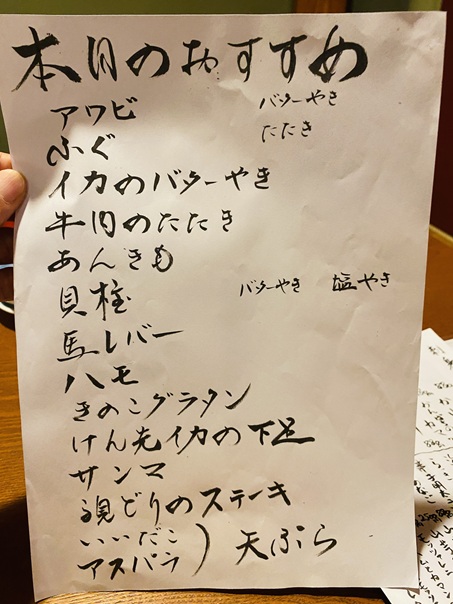 本日のおすすめ
アワビ バターやき
ふぐ たたき
イカのバターやき
牛肉のたたき
あんきも
貝柱 バターやき 塩やき
馬レバー
ハモ
きのこグラタン
けん先イカの下足
サンマ
親どりのステーキ
いいだこ
アスパラ ) 天ぷら